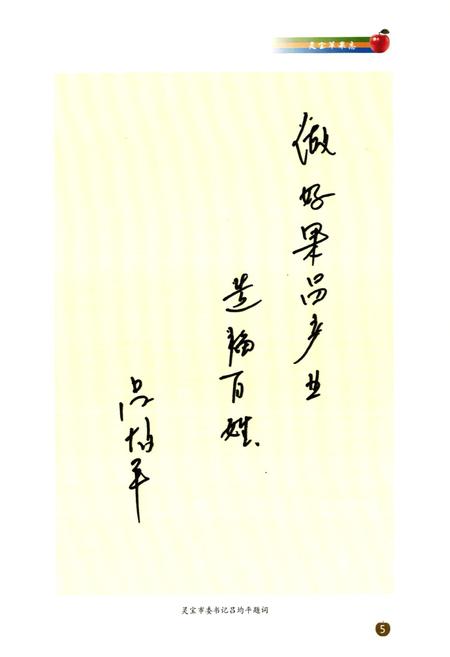 灵宝苹果志
做好果品产业
造福百姓
吕均平
灵宝市委书记吕均平题词
5